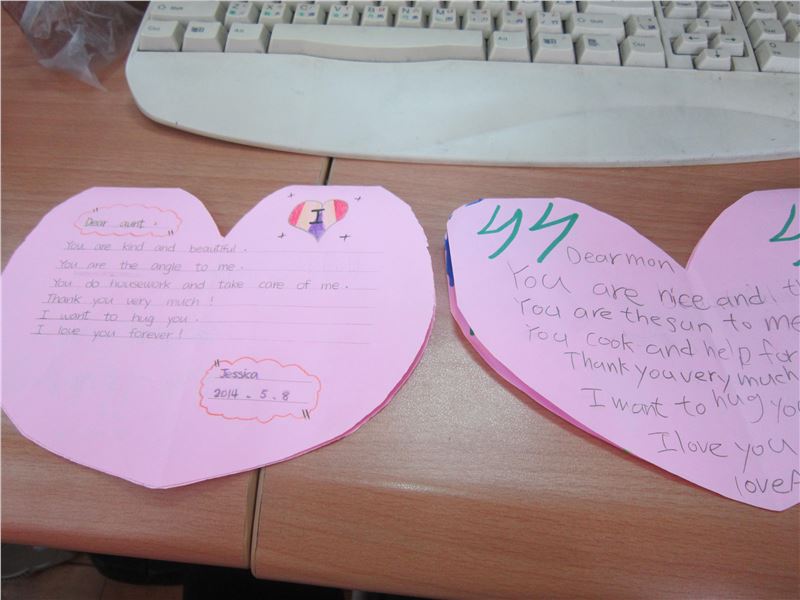 Dear aunt.
I
You are kind and beautiful.
You are the angle to me.
You do housework and take care of me.
Thank you very much!
I want to hug you.
I love you forever!
Jessica
2014.5.8
Dear mon
You are nice and
You are the sun to me
You cook and help for
Thank you very much
I want to hug
I love you
love